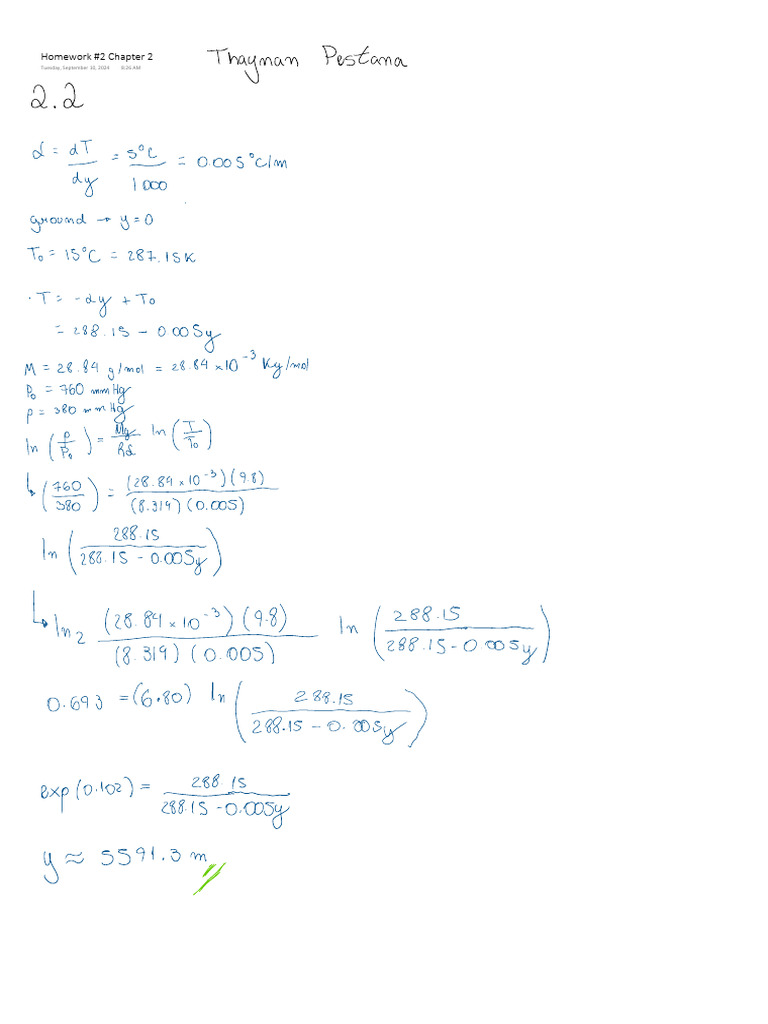 Homework #2 Chapter 2 Thaynan Pestana
Tuesday, September 10, 2024 8:26 AM
2.2
α = dT/dy = 5°C/1000 = 0.005°C/m
ground → y=0
T₀ = 15°C = 287.15K
· T = -αy + T₀
= 288.15 - 0.005y
M = 28.84 g/mol = 28.84 × 10⁻³ Kg/mol
P₀ = 760 mmHg
P = 380 mmHg
ln (P/P₀) = Mg/Rα ln (T/T₀)
↳ (760/380) = (28.84 × 10⁻³)(9.8)/(8.319)(0.005)
ln (288.15/288.15 - 0.005y)
↳ ln 2 (28.84 × 10⁻³)(9.8)/(8.319)(0.005) ln (288.15/288.15 - 0.005y)
0.693 = (6.80) ln (288.15/288.15 - 0.005y)
exp(0.102) = 288.15/288.15 - 0.005y
y ≈ 5591.3 m